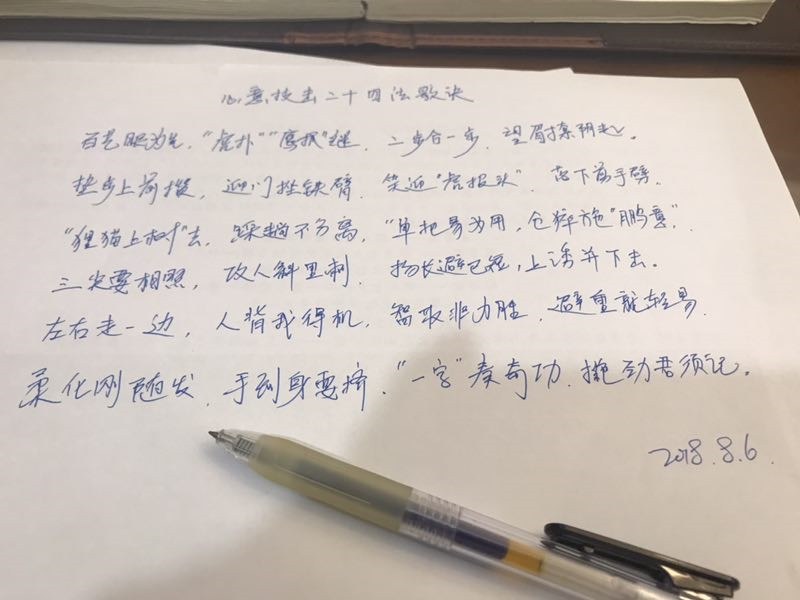 心意技击二十四法歌诀
百艺眼为先，“虎扑”“鹰捉”继，二步合一步，望眉撩阴走。
垫步上前搂，迎门挫铁臂，笑迎“虎报头”，落下剪手臂。
“狸猫上树”去，踩趟不分离，“单把易为用，仓猝施“鹏意”。
三尖要相照，攻人斜里刺，扬长避己短，上诱并下去。
左右走一边，人背我得机，智取非力胜，避重就轻易。
柔化刚随发，手到身要挤，“一字”奏奇功，拖劲君须记。
2018.8.6.